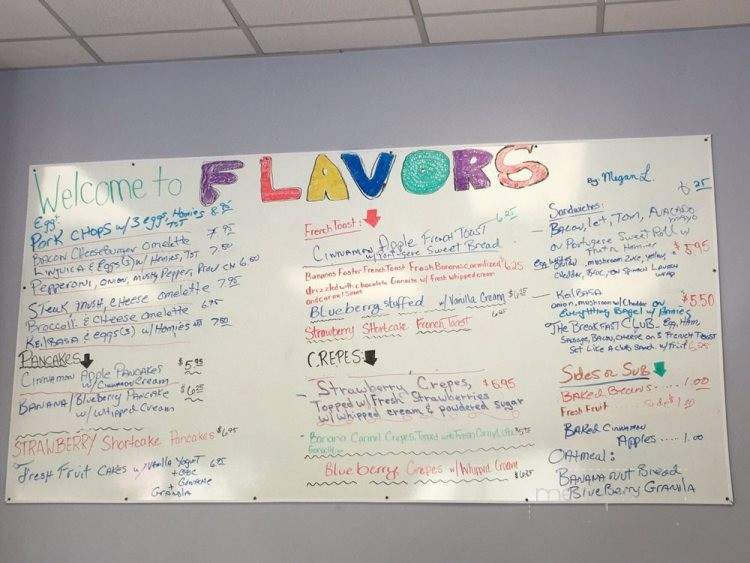 Welcome to FLAVORS
By: Megan L.
Eggs
PORK CHOPS w/ 3 eggs, Homies 8.95
TST
BACON Cheeseburger omelette 7.95
Linguica & Eggs(3) w/ Homies, TST 7.50
Pepperoni, onion, mush, Pepper, Prov CH 6.50
STeak, mush, cheese omelette 7.95
Broccoli & Cheese omelette 6.75
KeilBASA & eggs(3) w/ Homies 7.50
PANCAKES
CINNAMON Apple PANCAKES $5.95
w/ Cinnamon Cream
BANANA/Blueberry PANCAKE $6.25
w/ Whipped Cream
STRAWBERRY Shortcake Pancakes $6.95
Fresh Fruit CAKES w/ Vanilla Yogurt 6.25
GRANOLA
French Toast:
CINNAMON Apple French TOAST 6.25
w/ Portygese Sweet Bread
Bananas Foster French Toast Fresh Bananas, carmilized 6.25
drizzled with chocolate Ganache w/ fresh whipped cream
and carmel sauce
BLUeberry stuffed w/ Vanilla Cream $6.25
Strawberry Shortcake French Toast 6.25
CREPES:
- Strawberry Crepes, $6.95
Topped w/ Fresh Strawberries
w/ whipped cream & powdered sugar
- Banana Carmel Crepes, Topped with Fresh Carmel
Blueberry Crepes w/ Whipped Cream $6.25
Sandwiches: 6.25
- Bacon, Let, Tom, AVACADO
mayo
on Portygese Sweet Roll w/
$5.95
mushroom
- KeilBASA
onion, mushroom w/ Cheddar on $5.50
Everything Bagel w/ Homies
THE BREAKFAST CLUB - Egg, HAM,
Sausage, BACON, CHEESE on 3 FRENCH TOAST
Set Like A Club Sand. w/ Fruit 6.95
Sides or Sub
BAKED BEANS.... 1.00
Fresh Fruit Side $1.00
BAKED Cinnamon
Apples.... 1.00
OATmeal:
BANANA NUT Bread
BLUeBerry GRANOLA